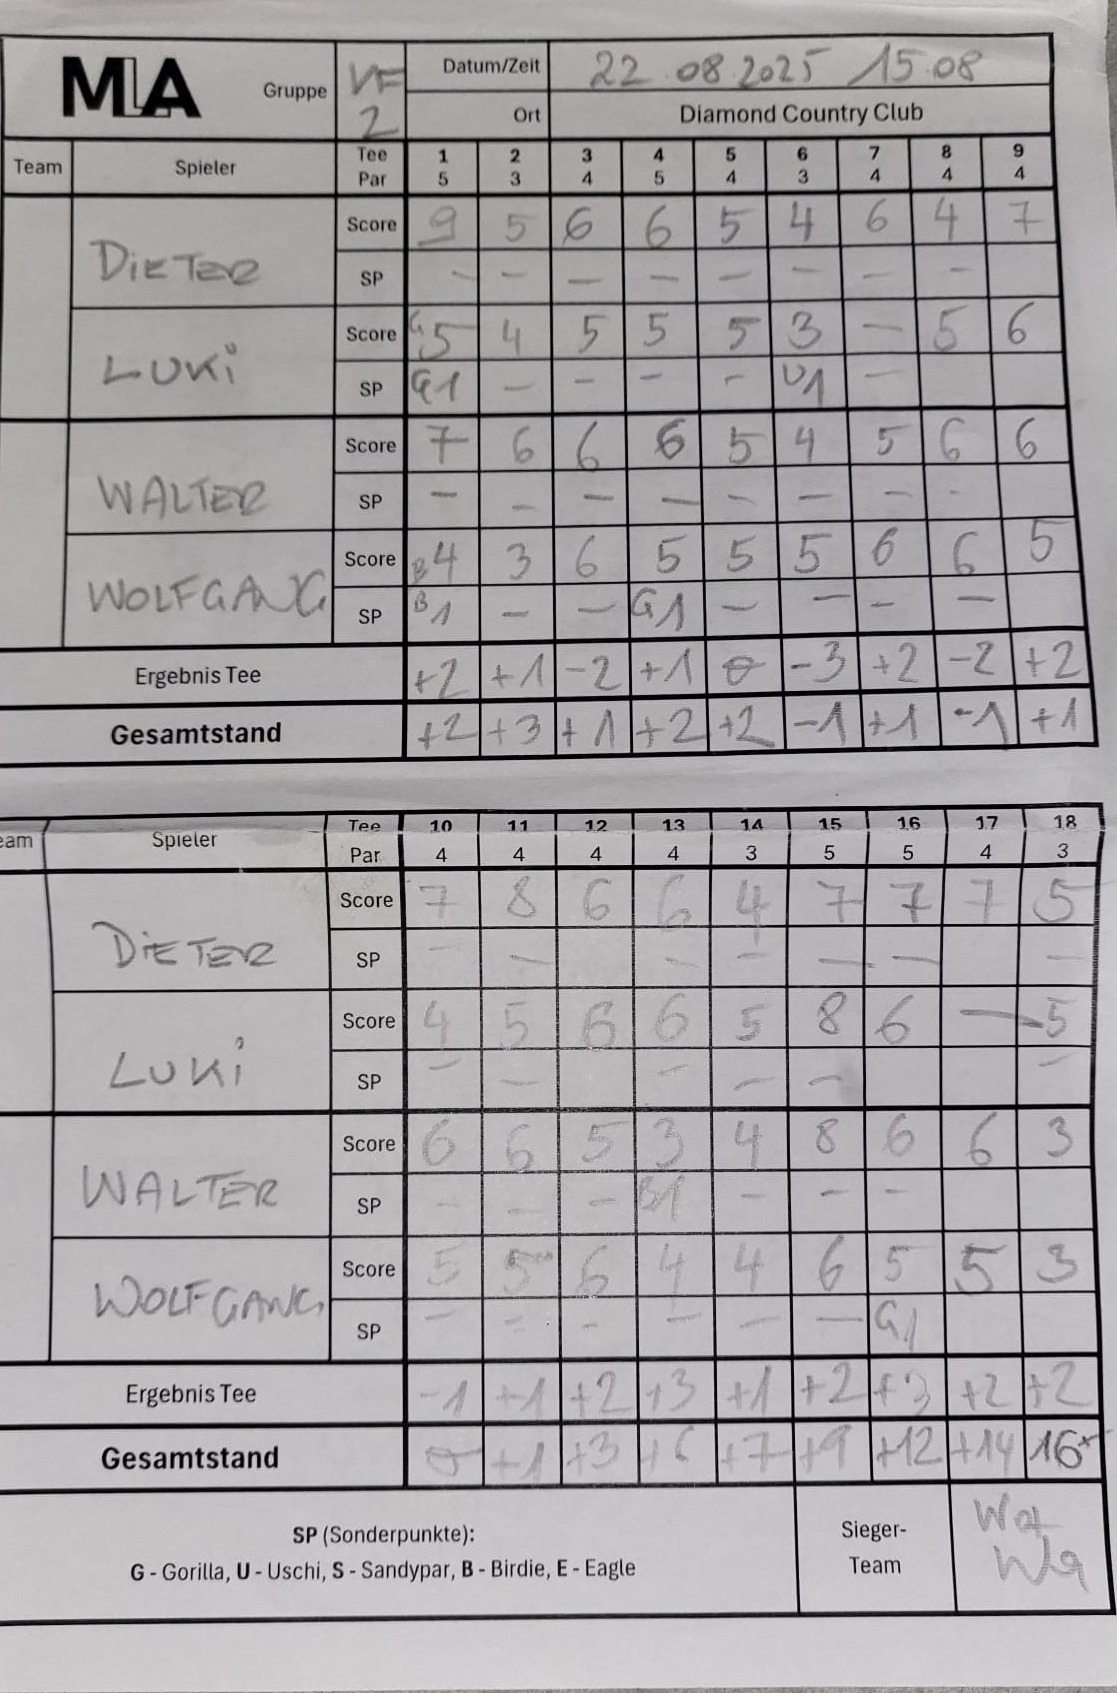 MLA Gruppe VF 2 Datum/Zeit 22.08.2025 15.08
Ort Diamond Country Club
Team Spieler Tee 1 2 3 4 5 6 7 8 9
Par 5 3 4 5 4 3 4 4 4
DIETER Score 9 5 6 6 5 4 6 4 7
SP - - - - - - - -
LUKI Score G 5 4 5 5 5 3 - 5 6
SP G1 - - - - U1 -
WALTER Score 7 6 6 6 5 4 5 6 6
SP - - - - - - - -
WOLFGANG Score B 4 3 6 5 5 5 6 6 5
SP B1 - - G1 - - - -
Ergebnis Tee +2 +1 -2 +1 0 -3 +2 -2 +2
Gesamtstand +2 +3 +1 +2 +2 -1 +1 -1 +1
eam Spieler Tee 10 11 12 13 14 15 16 17 18
Par 4 4 4 4 3 5 5 4 3
DIETER Score 7 8 6 6 4 7 7 7 5
SP - - - - - - -
LUKI Score 4 5 6 6 5 8 6 - 5
SP - - - - - -
WALTER Score 6 6 5 3 4 8 6 6 3
SP - - - B1 - - -
WOLFGANG Score 5 5 6 4 4 6 5 5 3
SP - - - - - - G1
Ergebnis Tee -1 +1 +2 +3 +1 +2 +3 +2 +2
Gesamtstand 0 +1 +3 +6 +7 +9 +12 +14 16+
SP (Sonderpunkte):
G - Gorilla, U - Uschi, S - Sandypar, B - Birdie, E - Eagle
Sieger-
Team